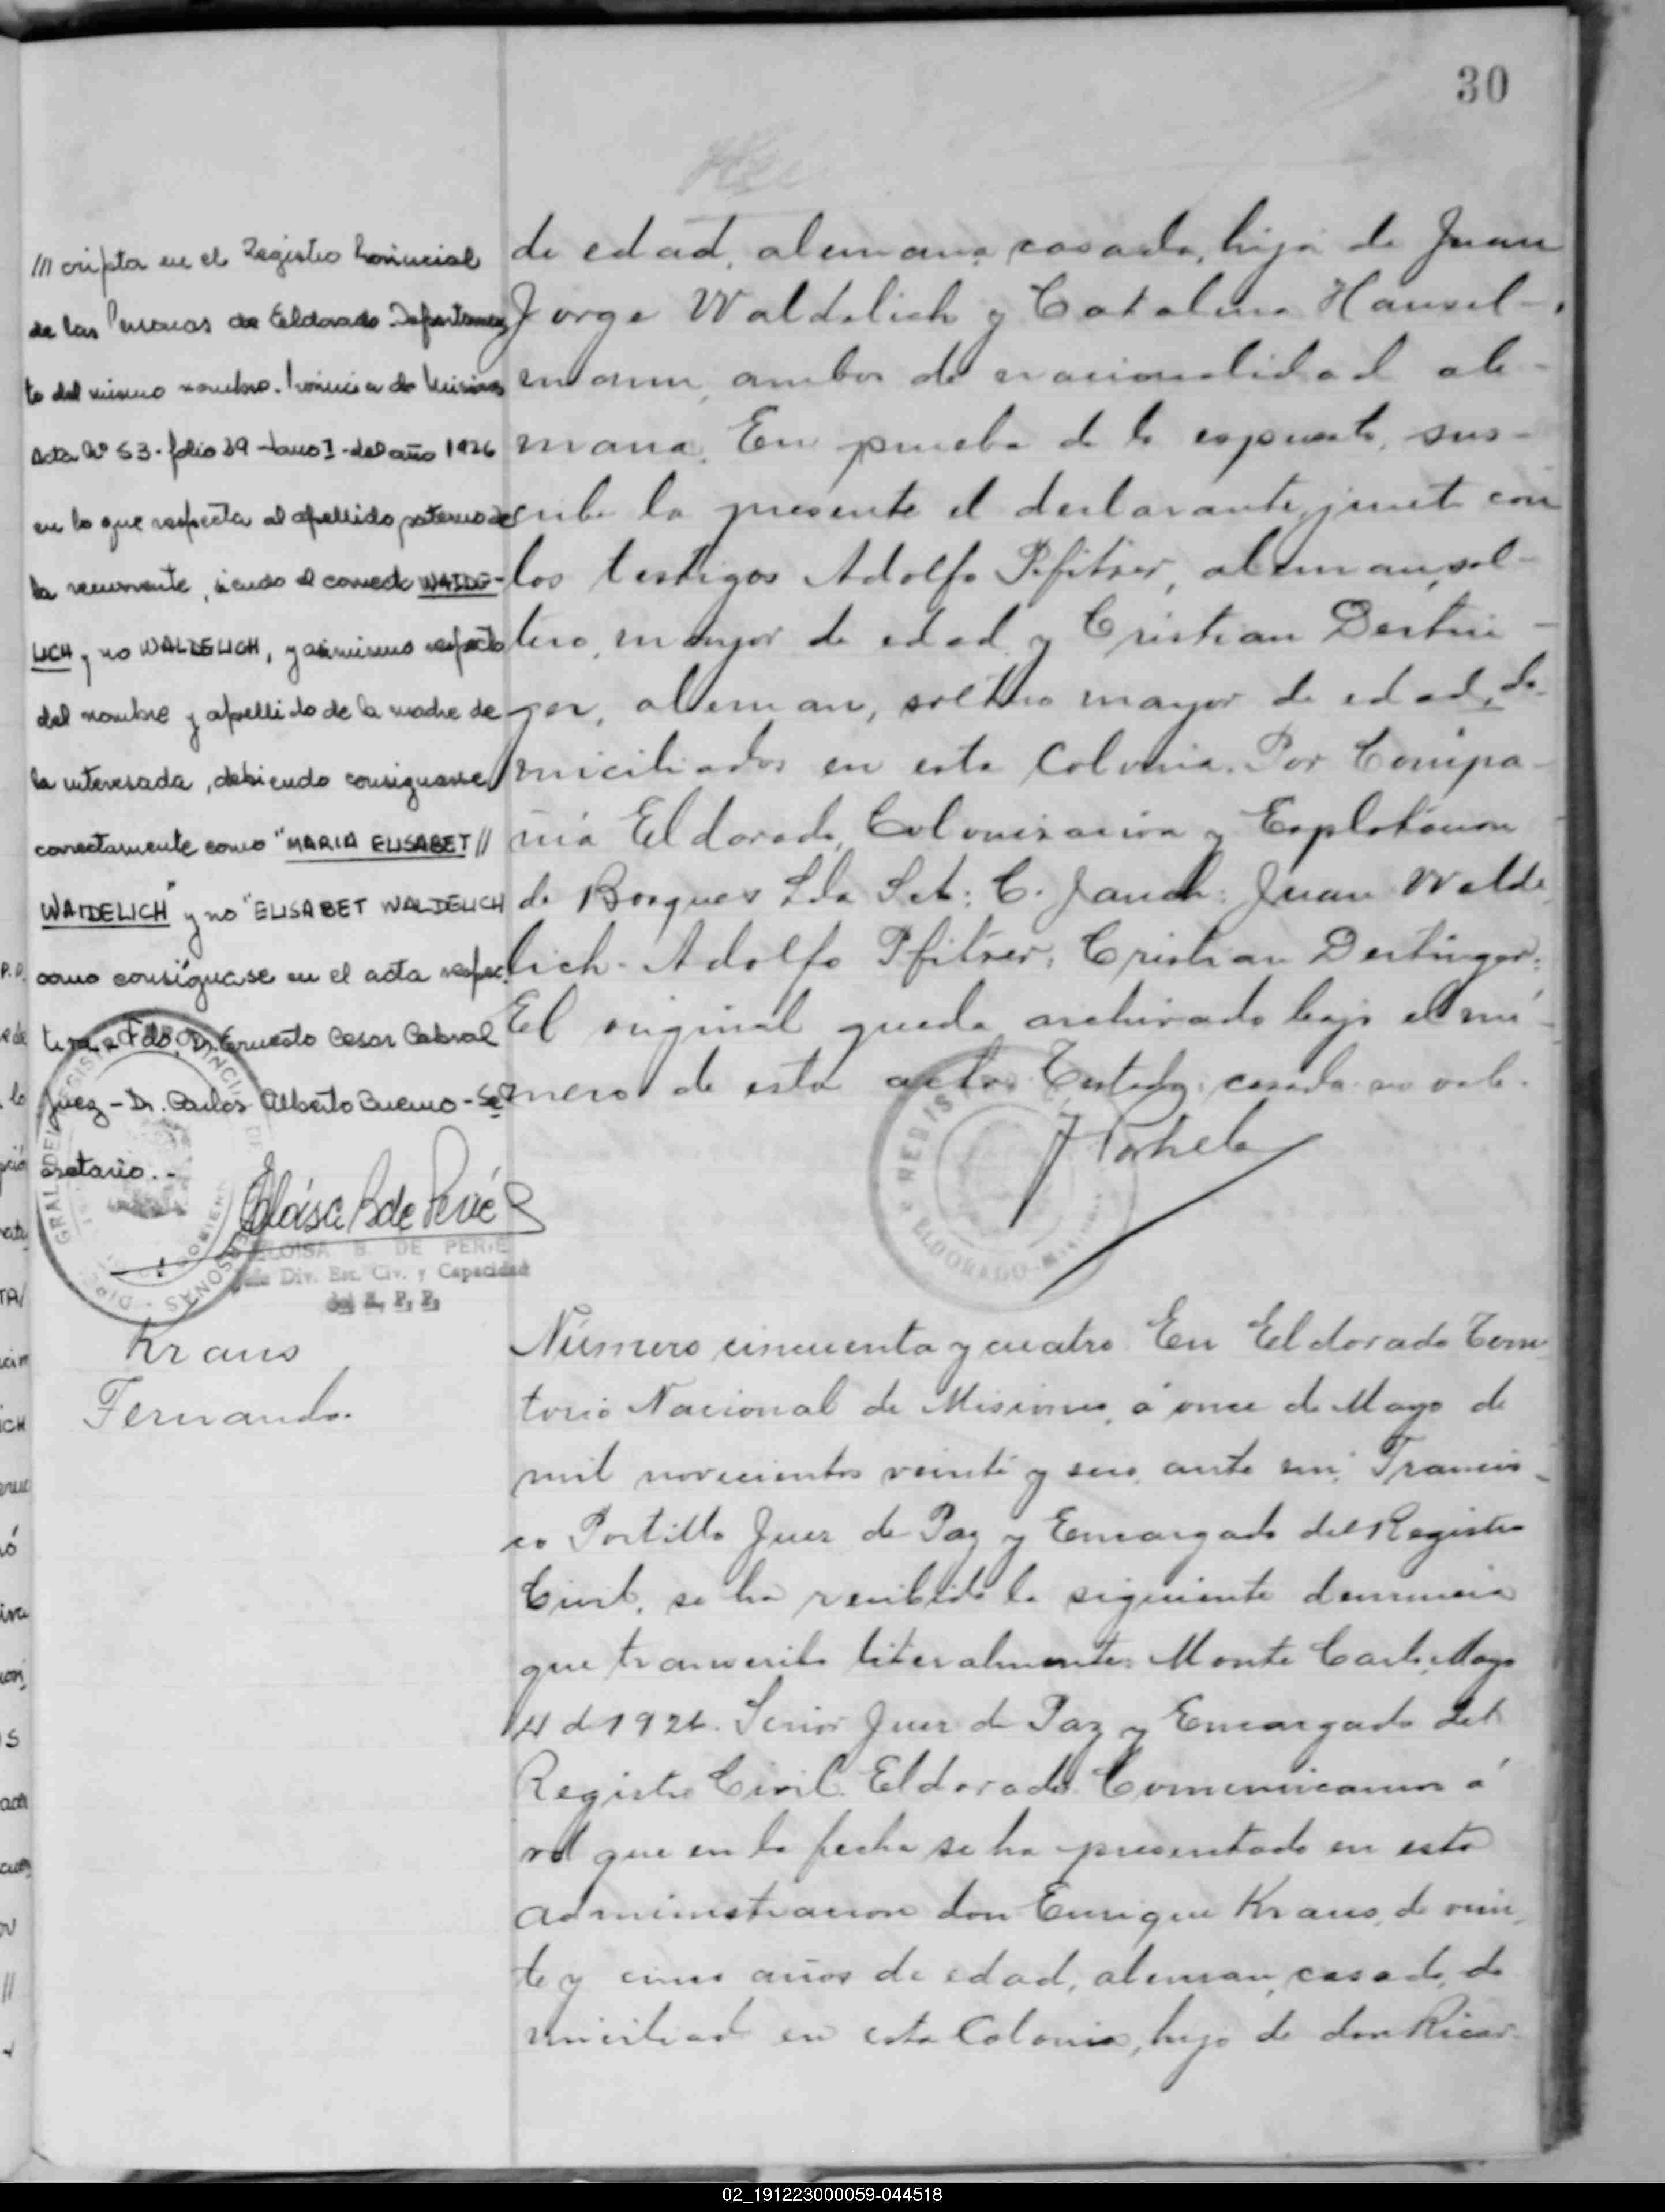 30
///cripta en el Registro Provincial
de las Personas de Eldorado Departamen
to del mismo nombre. Provincia de Misiones
Acta Nº 53 - folio 29 - tomo I - del año 1926
en lo que respecta al apellido paterno de
la recurrente, siendo el correcto WAIDE-
LICH y no WALDELICH, y asimismo respecto
del nombre y apellido de la madre de
la interesada, debiendo consignarse
correctamente como "MARIA ELISABET//
WAIDELICH" y no "ELISABET WALDELICH
como consígnase en el acta respec
tiva. - Fdo. Dr. Ernesto Cesar Cabral
Juez - Dr. Carlos Alberto Bueno - Se
cretario. -
Eloísa B de Perié
ELOISA B. DE PERIE
Jefe Div. Est. Civ. y Capacidad
del R. P. P.
Kraus
Fernando.
de edad, alemana, casada, hija de Juan
Jorge Waldelich y Catalina Hansel-
mann, ambos de nacionalidad ale-
mana. En prueba de lo espuesto, sus-
cribe la presente el declarante, junto con
los testigos Adolfo Pfitzer, aleman, sol-
tero, mayor de edad y Cristian Dertin-
ger, aleman, soltero mayor de edad, do-
miciliados en esta Colonia. Por Compa-
ñia Eldorado, Colonizacion y Esplotacion
de Bosques Lda Sct: C. Jauch: Juan Walde
lich - Adolfo Pfitzer: Cristian Dertinger:
El original queda archivado bajo el nú-
mero de esta acta. Testado: casada: no vale.
REGISTRO
ELDORADO - Misiones
Número cincuenta y cuatro. En Eldorado Terri
torio Nacional de Misiones, á once de Mayo de
mil novecientos veinte y seis, ante mi, Francis-
co Portillo Juez de Paz y Encargado del Registro
Civil, se ha recibido la siguiente denuncia
que transcribo literalmente: Monte Carlo, Mayo
4 de 1926. Señor Juez de Paz y Encargado del
Registro Civil. Eldorado. Comunicamos á
vd que en la fecha se ha presentado en esta
administracion don Enrique Kraus, de vein
te y cinco años de edad, aleman, casado, do
miciliado en esta Colonia, hijo de don Ricar-
02_191223000059-044518